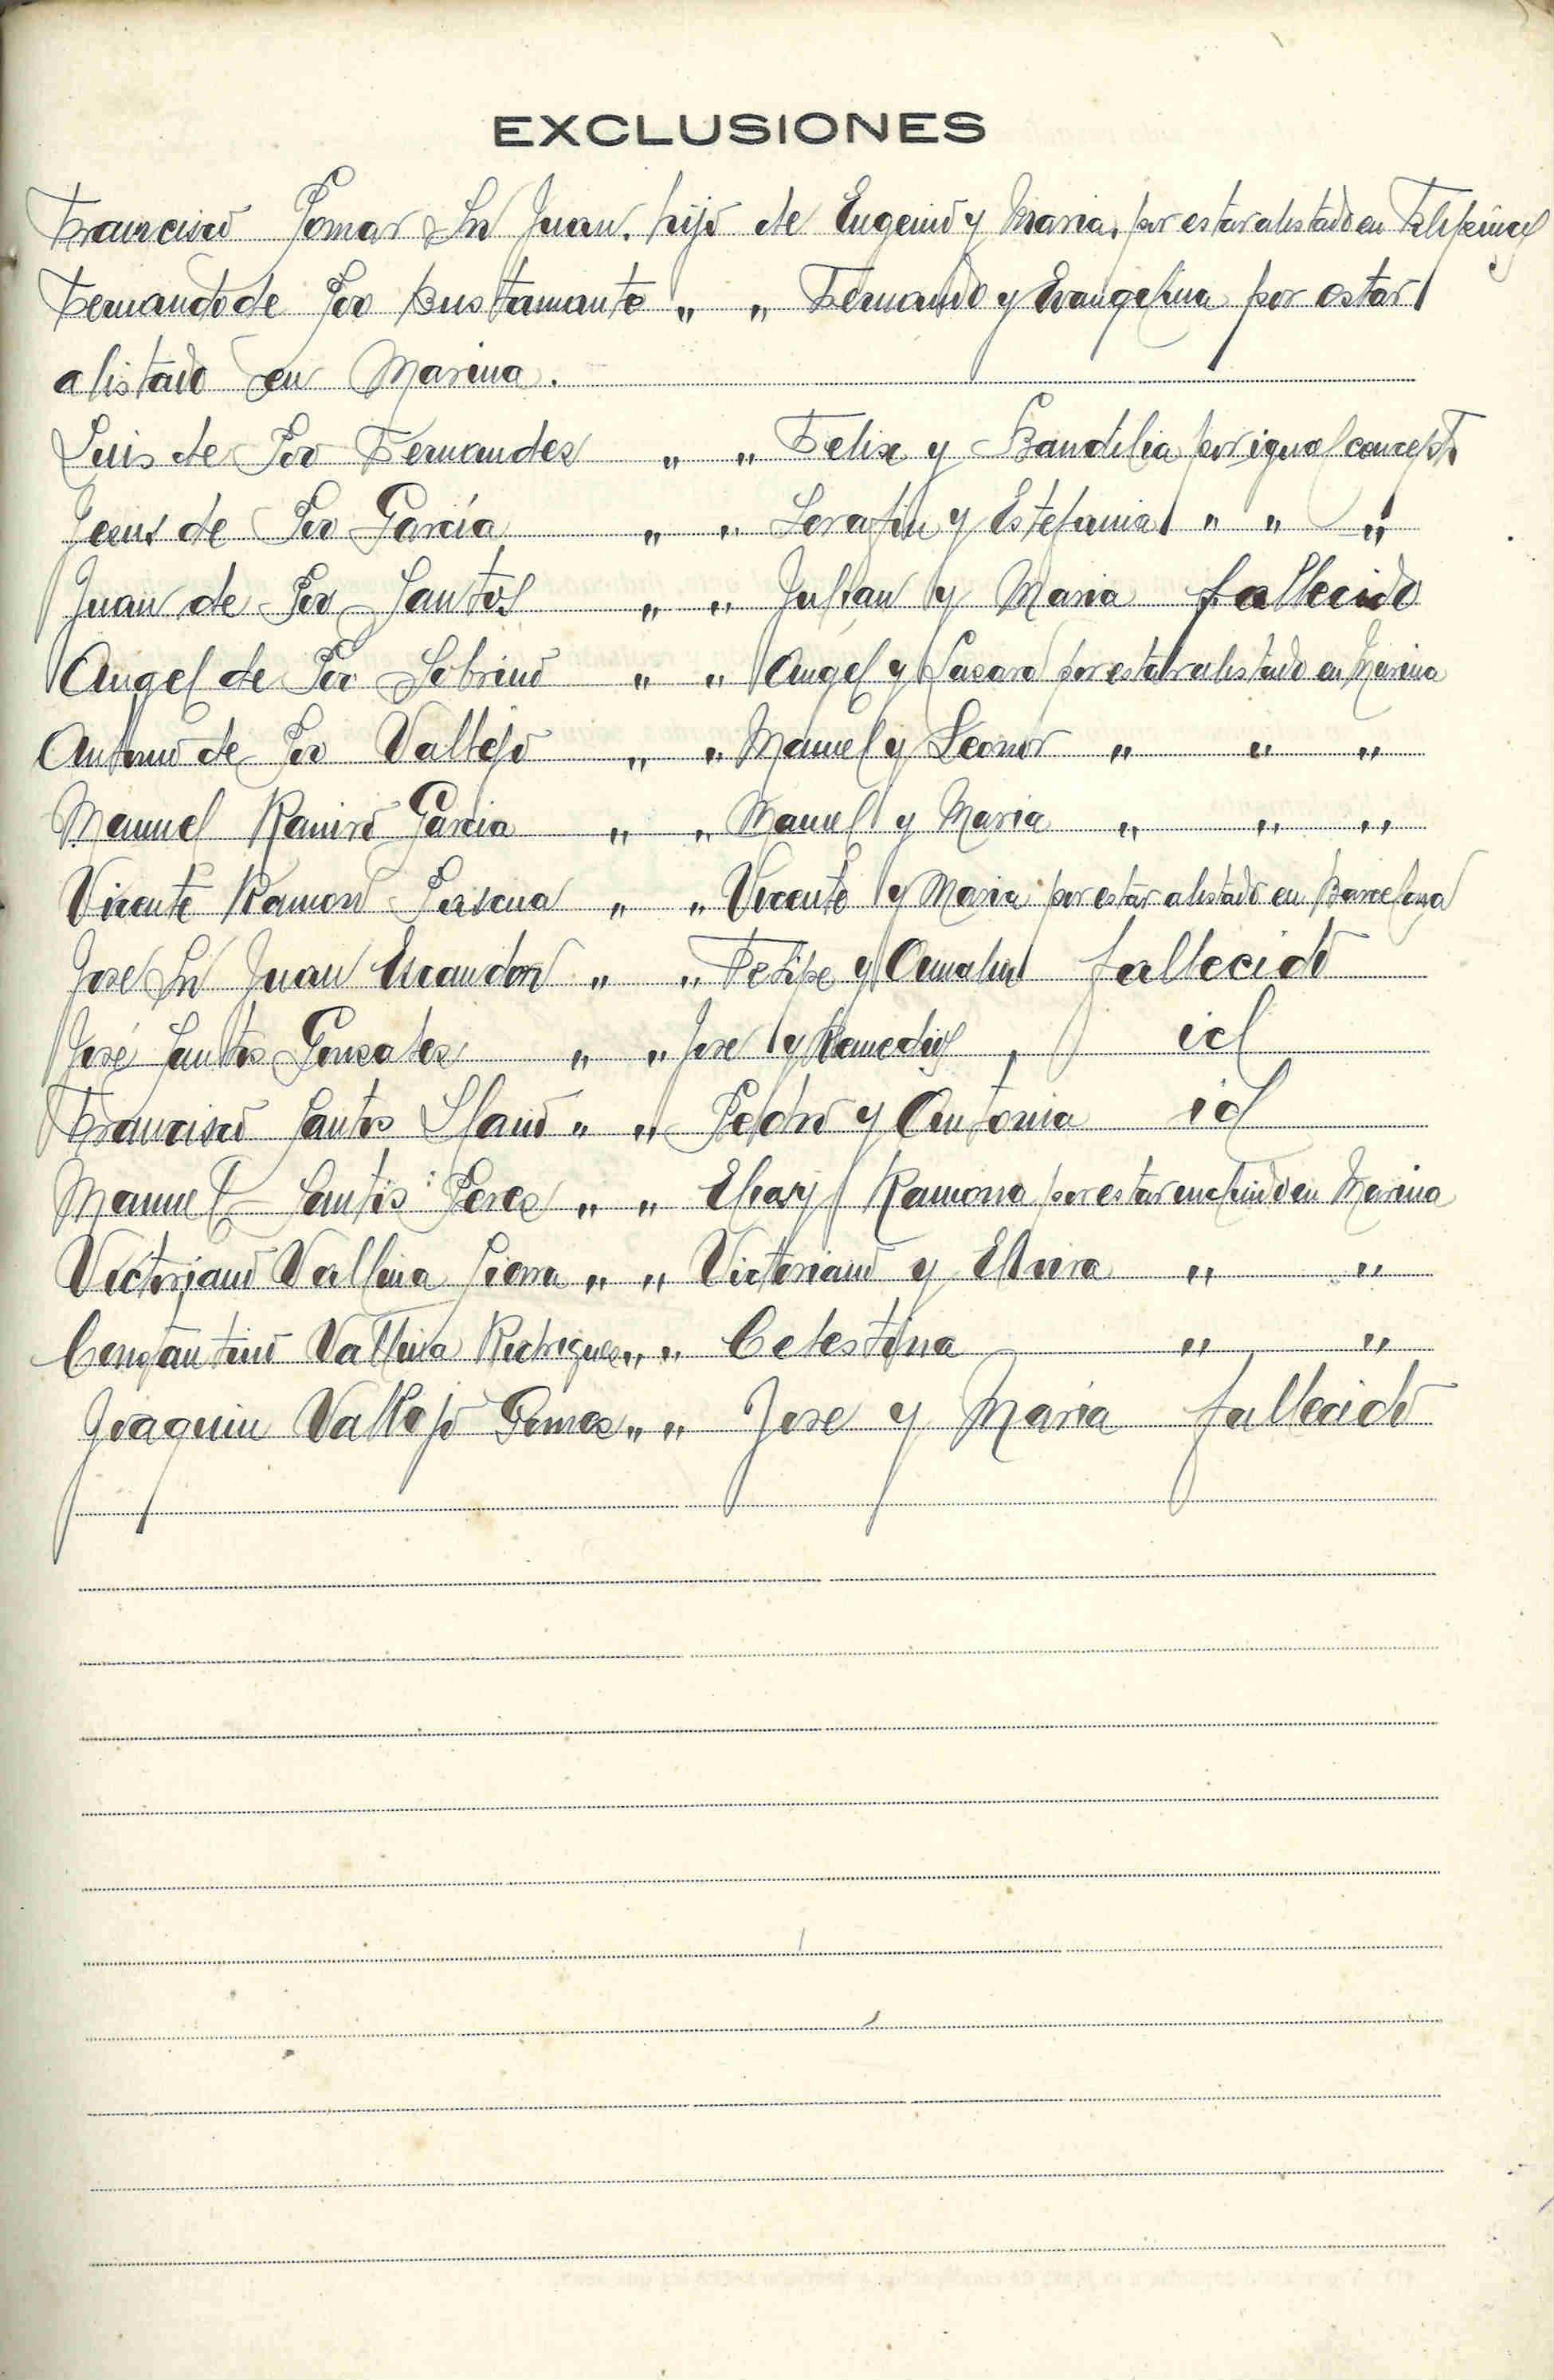 EXCLUSIONES
Francisco Pomar Sn Juan. hijo de Eugenio y Maria, por estar alistado en
Fernando de Poo Bustamante " " Fernando y Evangelina por estar
alistado en Marina.
Luis de Poo Fernandez " " Felix y Baudilia por igual concepto
Jesus de Poo García " " Serafin y Estefania " " "
Juan de Poo Santos " " Julian y Maria fallecido
Angel de Poo Sobrino " " Angel y Lazara por estar alistado en Marina
Antonio de Poo Vallejo " " Manuel y Leonor " " "
Manuel Ramiro Garcia " " Manuel y Maria " " "
Vicente Ramon " " Vicente y Maria por estar alistado en Barcelona
Jose Sn Juan Escandon " " Felipe y fallecido
José Santos Gonzalez " " Jose y Remedios id
Francisco Santos Llano " " Pedro y Antonia id
Manuel Santos Perez " " Ramona por estar en Marina
Victoriano Vallina Sierra " " Victoriano y Elvira " "
Constantino Vallina Rodriguez " " Celestina " "
Joaquin Vallejo Gomez " " Jose y Maria fallecido